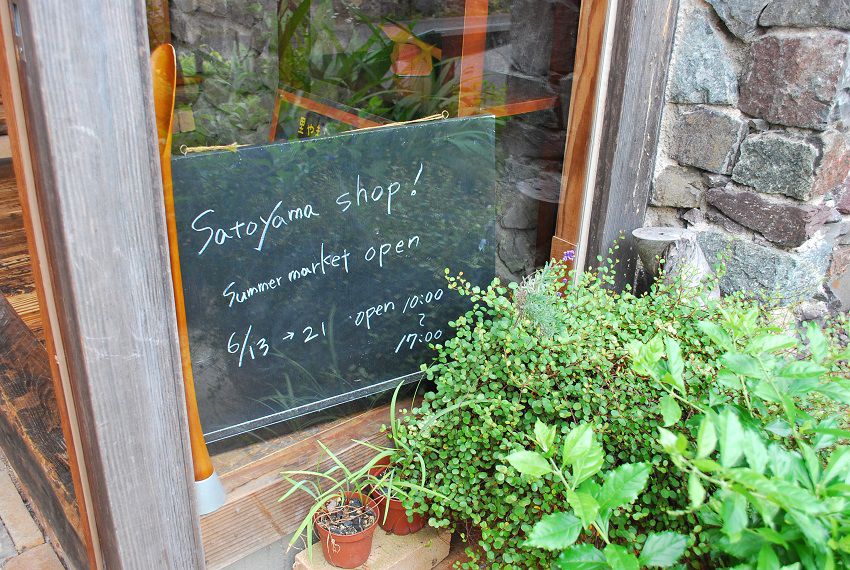 Satoyama shop!
Summer market open
6/13 → 21 open 10:00
~
17:00